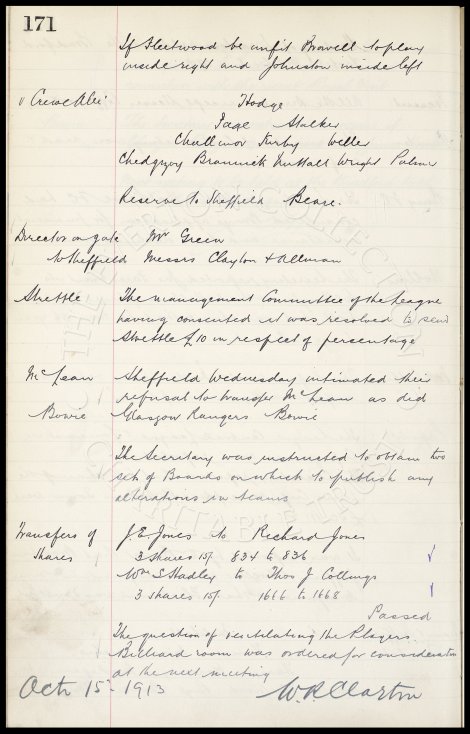 171
If Fleetwood be unfit Browell to play
inside right and Johnston inside left
v Crewe Alex Hodge
Page Stalker
Challinor Kirby Weller
Chedgzoy Bramwick Nuttall Wright Palmer
Reserve to Sheffield Beare.
Director on gate Mr Green
to Sheffield Messrs Clayton & Allman
Strettle The Management Committee of the League
having consented it was resolved to send
Strettle £10 in respect of percentage
McLean Sheffield Wednesday intimated their
refusal to transfer McLean as did
Bowie Glasgow Rangers Bowie
The Secretary was instructed to obtain two
sets of Boards on which to publish any
alterations in teams
Transfers of J E Jones to Richard Jones
Shares 3 shares 15/- 834 to 836
Wm S Hadley to Thos J Collings
3 shares 15/- 1666 to 1668
Passed
The question of ventilating the Players
Billiard room was ordered for consideration
at the next meeting
Octr 15th 1913 W.R. Clayton